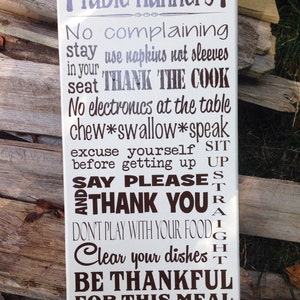 Table Manners
No complaining
stay in your seat
use napkins not sleeves
THANK THE COOK
No electronics at the table
chew*swallow*speak
excuse yourself before getting up
SIT UP STRAIGHT
SAY PLEASE
AND THANK YOU
DON'T PLAY WITH YOUR FOOD
Clear your dishes
BE THANKFUL
FOR THIS MEAL